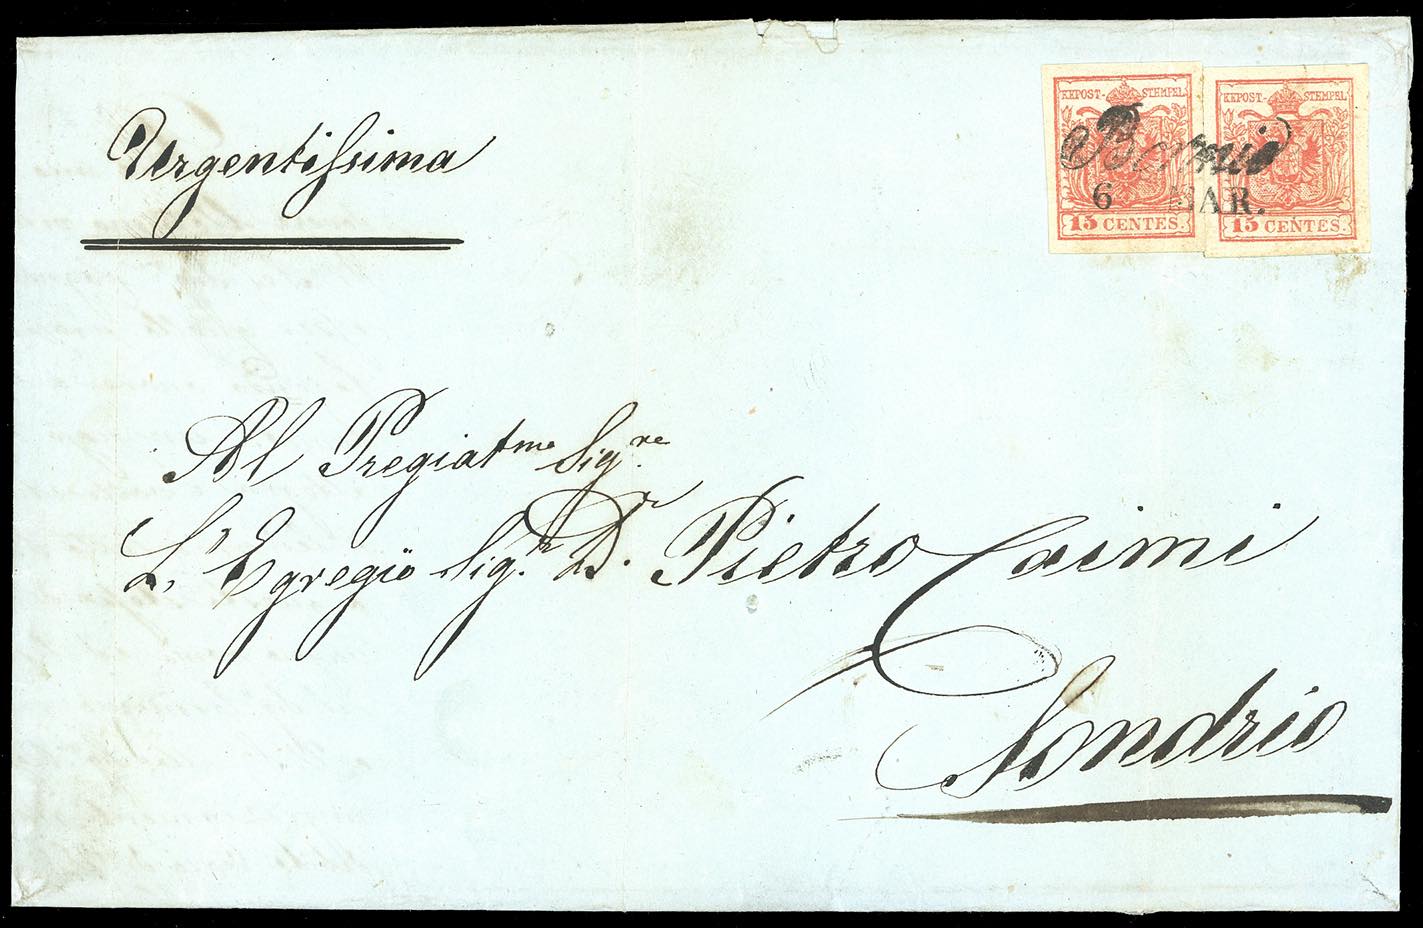 Urgentissima
KEPOST-STEMPEL
15 CENTES.
KEPOST-STEMPEL
15 CENTES.
Bormio
6 MAR.
Al Pregiatmo Sigre
L'Egregio Sigr Dr. Pietro Caimi
Sondrio